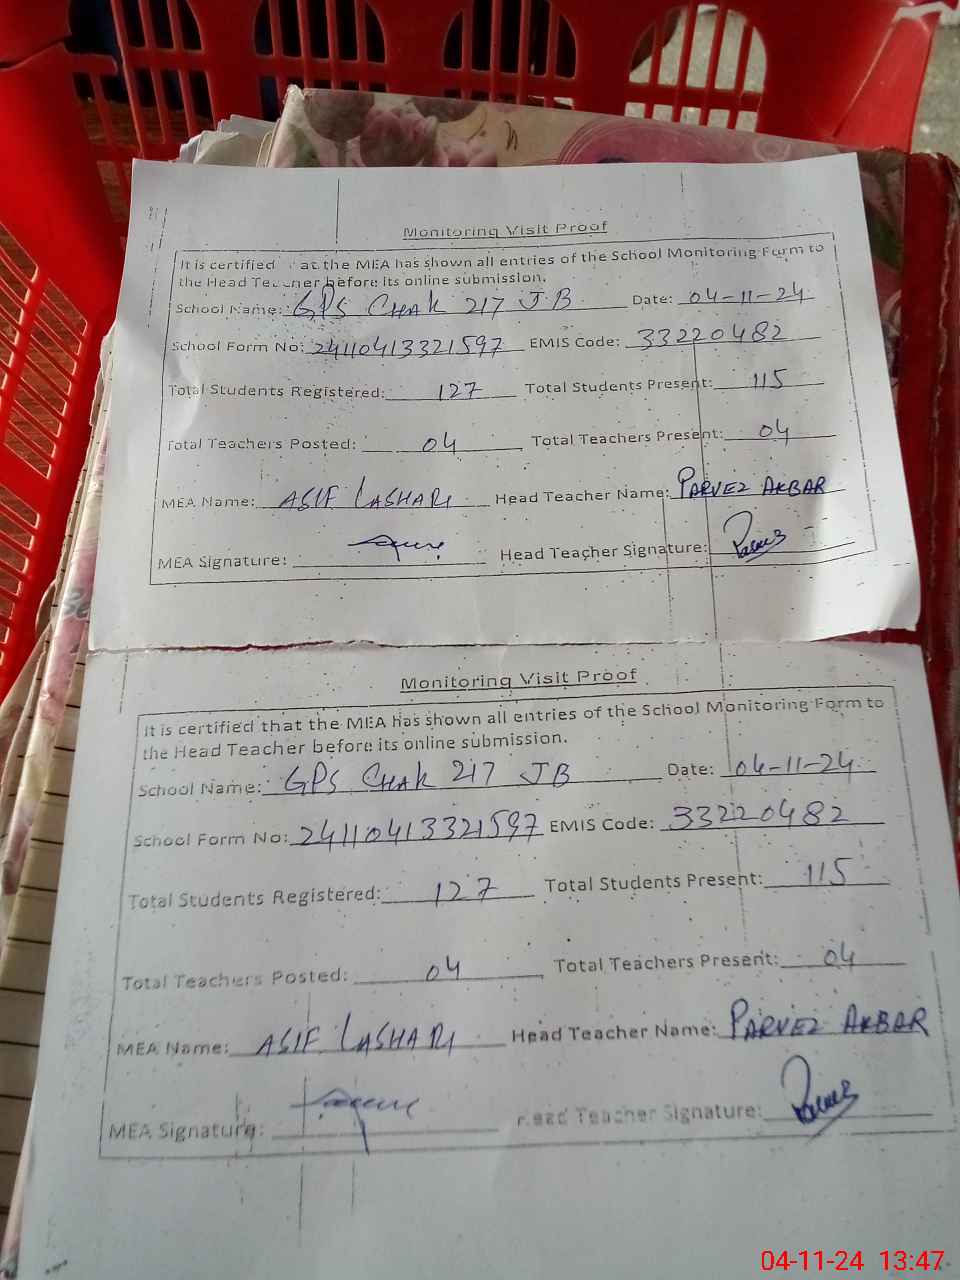 Monitoring Visit Proof
It is certified at the MEA has shown all entries of the School Monitoring Form to
the Head before its online submission.
School Name: GPS CHAK 217 JB Date: 04-11-24
School Form No: 24110413321597 EMIS Code: 33220482
Total Students Registered: 127 Total Students Present: 115
Total Teachers Posted: 04 Total Teachers Present: 04
MEA Name: ASIF LASHARI Head Teacher Name: PARVEZ AKBAR
MEA Signature: Head Teacher Signature:
Monitoring Visit Proof
It is certified that the MEA has shown all entries of the School Monitoring Form to
the Head Teacher before its online submission.
School Name: GPS CHAK 217 JB Date: 04-11-24
School Form No: 24110413321597 EMIS Code: 33220482
Total Students Registered: 127 Total Students Present: 115
Total Teachers Posted: 04 Total Teachers Present: 04
MEA Name: ASIF LASHARI Head Teacher Name: PARVEZ AKBAR
MEA Signature: Head Teacher Signature:
04-11-24 13:47